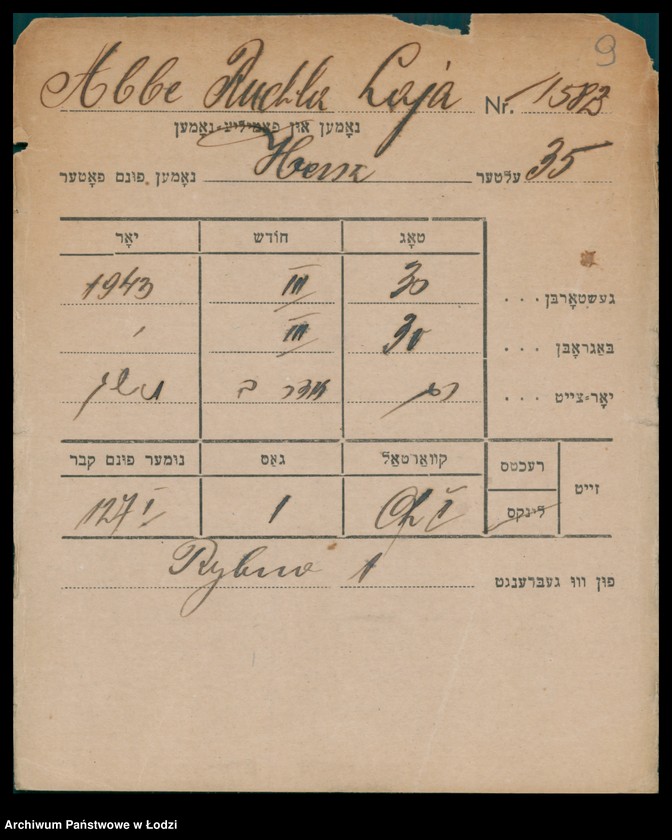 9
Abbe Ruchla Laja Nr. 1583
נאָמען און פאַמיליע־נאָמען
נאָמען פונם פאָטער Hersz עלטער 35
טאָג חודש יאָר
געשטאָרבן . . . 30 III 1943
באַגראָבן . . . 30 III
יאָר־צייט . . . אדר ב תשג
זייט רעכטס לינקס קוואַרטאַל גאַס נומער פונם קבר
I 1 127
פון וווּ געברענגט Rybna 1
Archiwum Państwowe w Łodzi